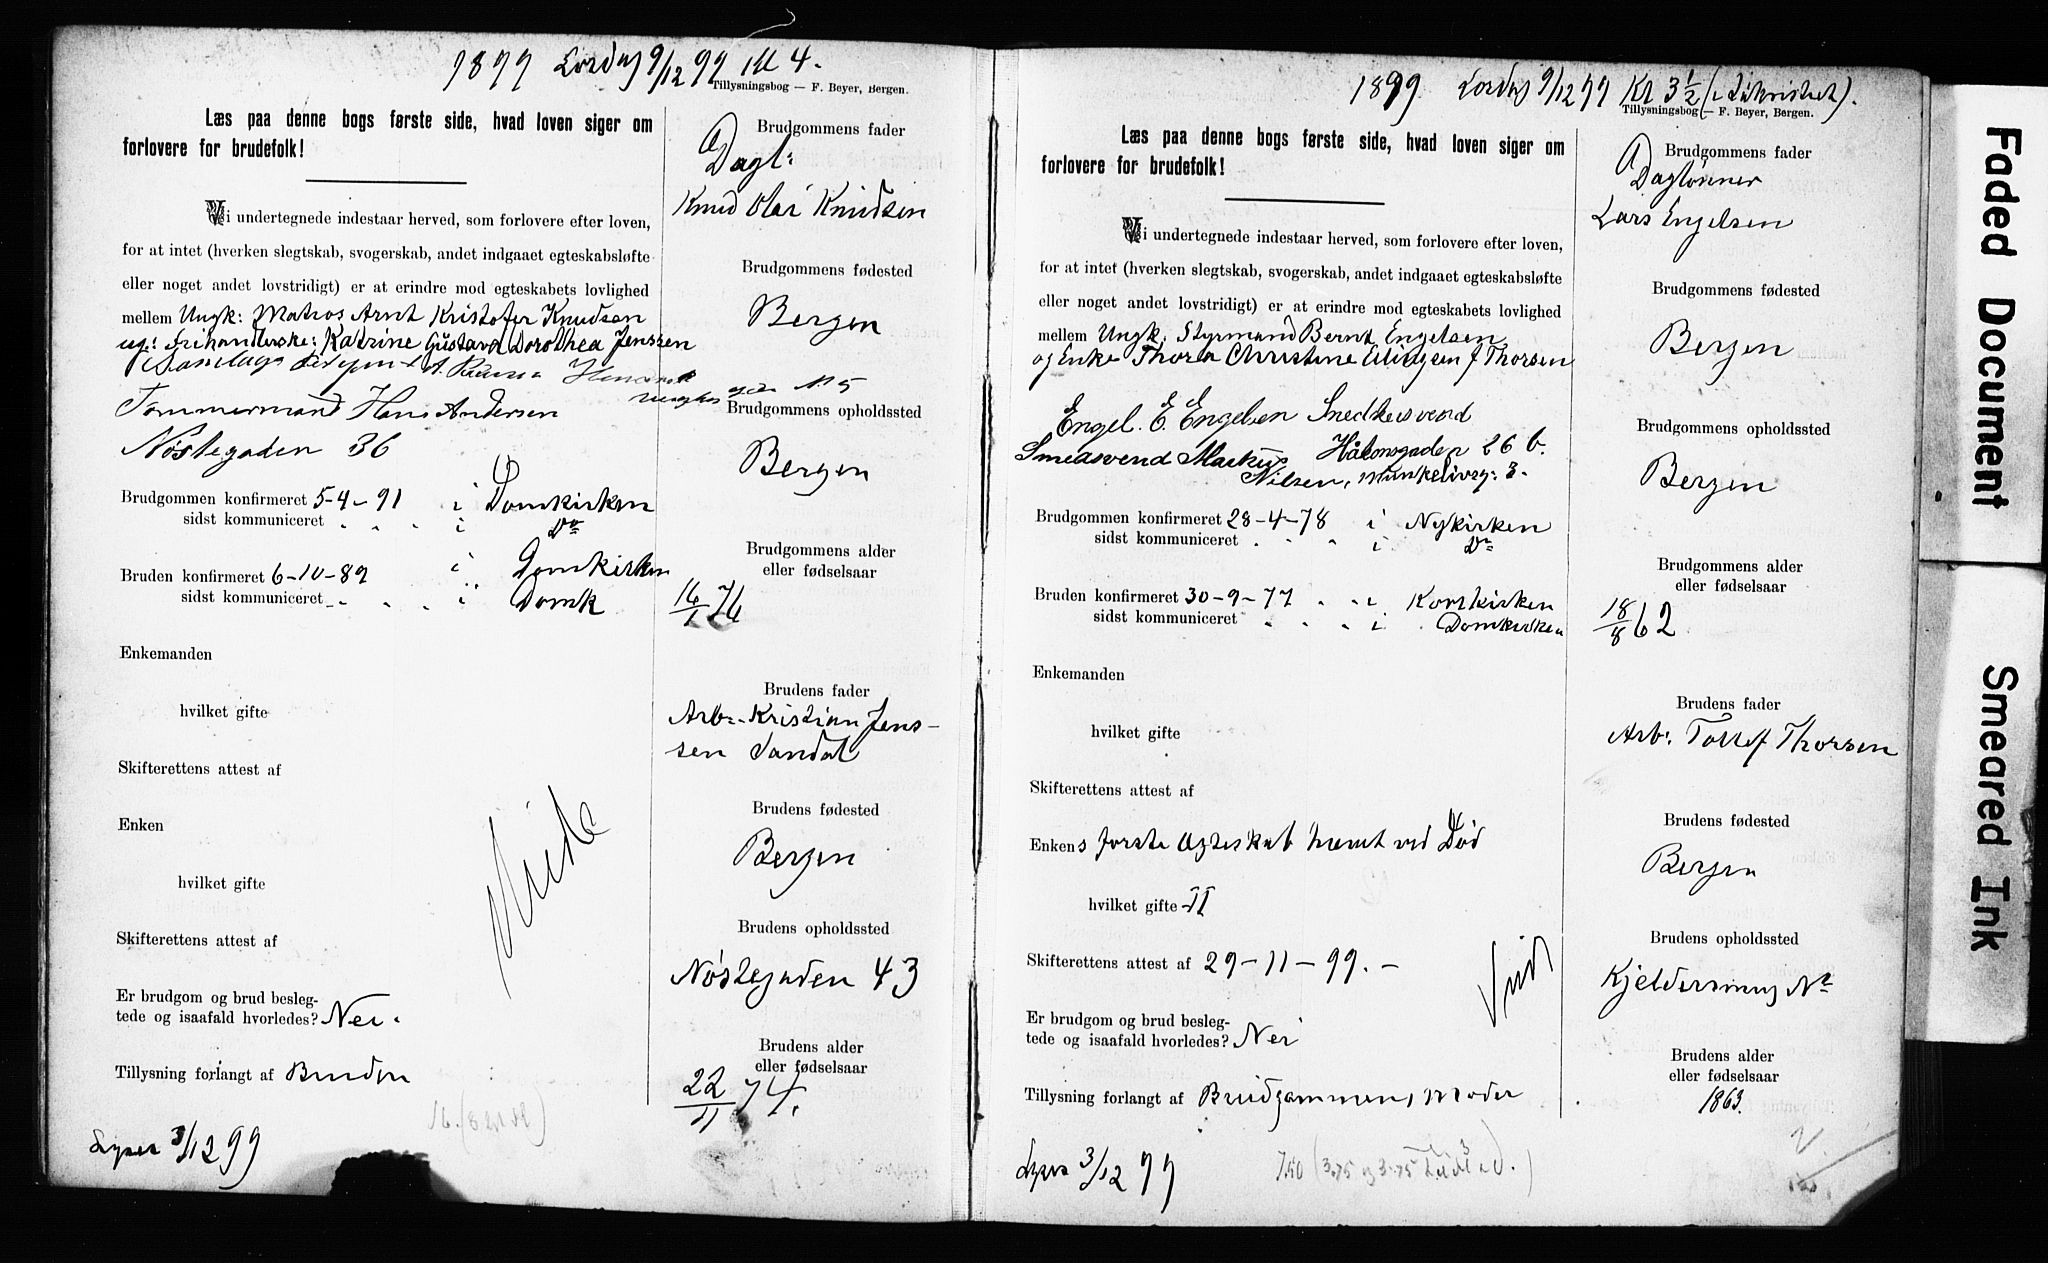 1899 Lørdag 9/12 99 Kl 4.
Tillysningsbog — F. Beyer, Bergen.
Læs paa denne bogs første side, hvad loven siger om
forlovere for brudefolk!
Vi undertegnede indestaar herved, som forlovere efter loven,
for at intet (hverken slegtskab, svogerskab, andet indgaaet egteskabsløfte
eller noget andet lovstridigt) er at erindre mod egteskabets lovlighed
mellem Ungk: Matros Arnt Kristofer Knudsen
og: Frihandlerske: Katrine Gustava Dorothea Jenssen
No 5
Tømmermand Hans Andersen
Nøstegaden 36
Brudgommen konfirmeret 5-4-91 i Domkirken
sidst kommuniceret " " " i Do
Bruden konfirmeret 6-10-89 i Domkirken
sidst kommuniceret " " " i Domk
Enkemanden
hvilket gifte
Skifterettens attest af
Enken
hvilket gifte
Skifterettens attest af
Er brudgom og brud besleg-
tede og isaafald hvorledes? Nei.
Tillysning forlangt af Bruden
Lyses 3/12 99
Brudgommens fader
Dagl:
Knud Olai Knudsen
Brudgommens fødested
Bergen
Brudgommens opholdssted
Bergen
Brudgommens alder
eller fødselsaar
16/1 76
Brudens fader
Arb: Kristian Jens-
sen Sandal
Brudens fødested
Bergen
Brudens opholdssted
Nøstegaden 43
Brudens alder
eller fødselsaar
22/11 74.
1899. Lørdag 9/12 99 Kl 3 1/2 (i Sakristiet).
Tillysningsbog — F. Beyer, Bergen.
Læs paa denne bogs første side, hvad loven siger om
forlovere for brudefolk!
Vi undertegnede indestaar herved, som forlovere efter loven,
for at intet (hverken slegtskab, svogerskab, andet indgaaet egteskabsløfte
eller noget andet lovstridigt) er at erindre mod egteskabets lovlighed
mellem Ungk. Styrmand Bernt Engelsen
og Enke Thora Christine Ellingsen f Thorsen
Engel. E. Engelsen Snedkersvend
Håkonsgaden 26 b.
Smedsvend Markus
Nilsen, Munkelivsg: 3.
Brudgommen konfirmeret 28-4-78 i Nykirken
sidst kommuniceret " " " i Do
Bruden konfirmeret 30-9-77 " " i Korskirken
sidst kommuniceret " " " i Domkirken
Enkemanden
hvilket gifte
Skifterettens attest af
Enkens første Ægteskab hævet ved Død
hvilket gifte II
Skifterettens attest af 29-11-99.-
Er brudgom og brud besleg-
tede og isaafald hvorledes? Nei
Tillysning forlangt af Brudgommens Moder
Lyses 3/12 99
Brudgommens fader
Daglønner
Lars Engelsen
Brudgommens fødested
Bergen
Brudgommens opholdssted
Bergen
Brudgommens alder
eller fødselsaar
18/8 62
Brudens fader
Arb: Tollef Thorsen
Brudens fødested
Bergen
Brudens opholdssted
Kjeldersmug No
Brudens alder
eller fødselsaar
1863.
Faded Document
Smeared Ink